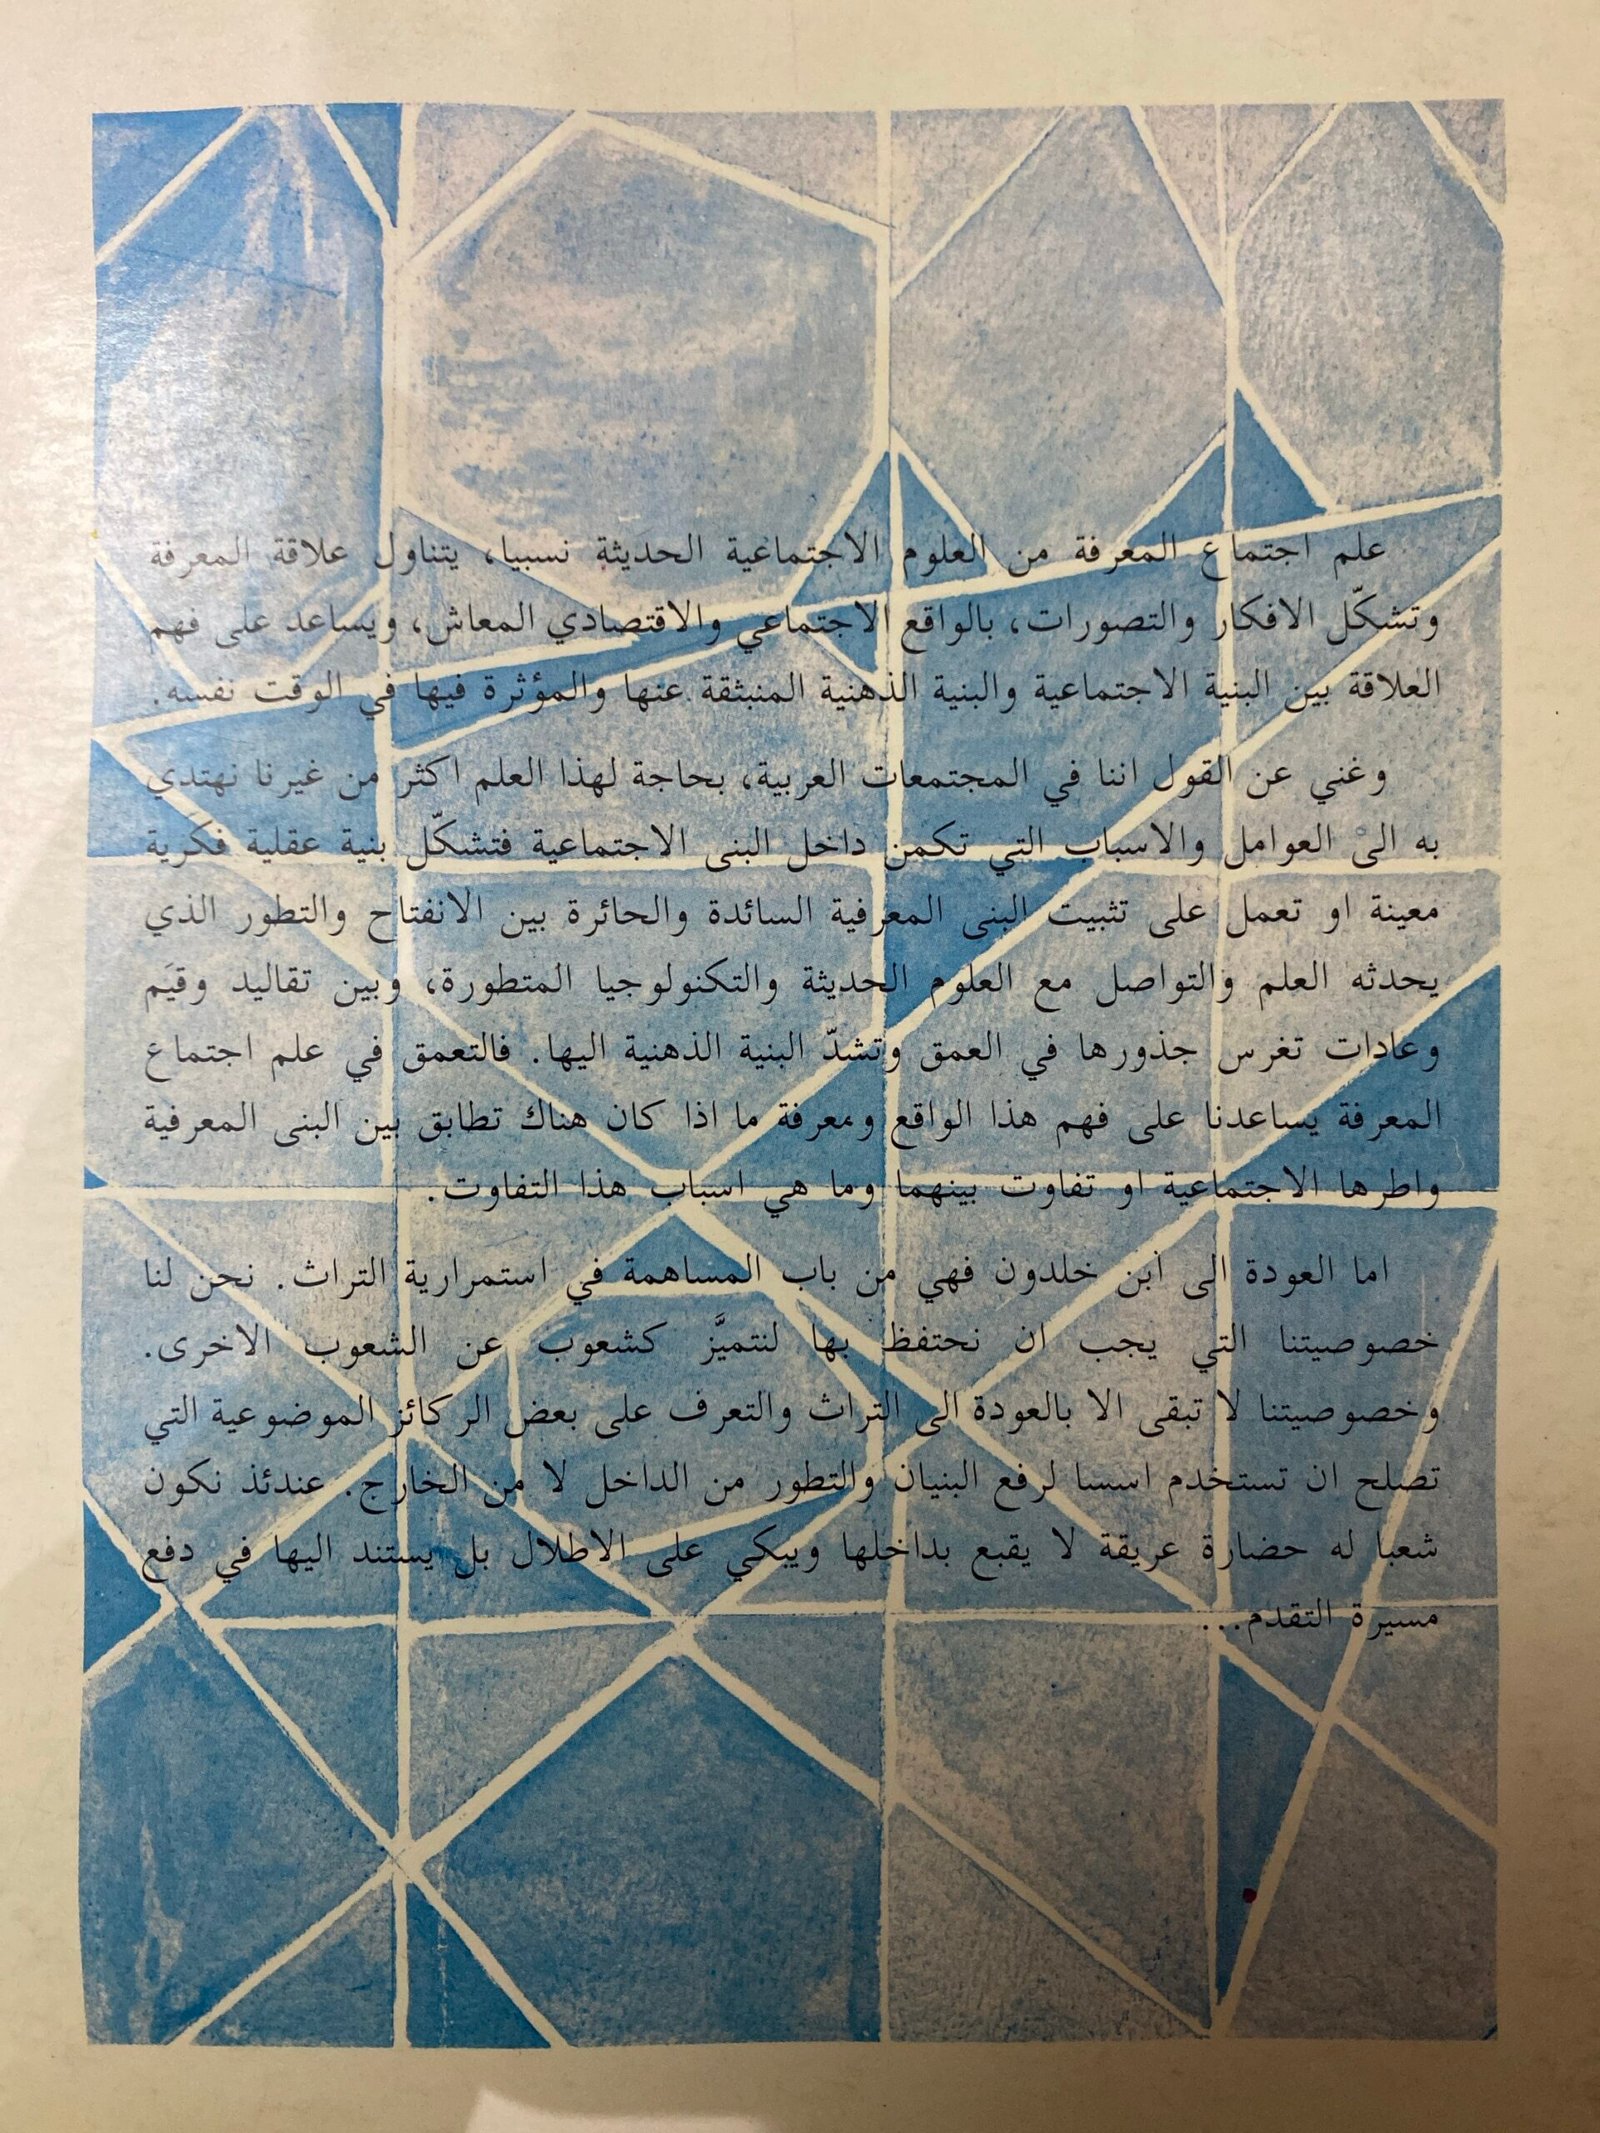 علم اجتماع المعرفة من العلوم الاجتماعية الحديثة نسبيا، يتناول علاقة المعرفة
وتشكّل الافكار والتصورات، بالواقع الاجتماعي والاقتصادي المعاش، ويساعد على فهم
العلاقة بين البنية الاجتماعية والبنية الذهنية المنبثقة عنها والمؤثرة فيها في الوقت نفسه.
وغني عن القول اننا في المجتمعات العربية، بحاجة لهذا العلم اكثر من غيرنا نهتدي
به الى العوامل والاسباب التي تكمن داخل البنى الاجتماعية فتشكّل بنية عقلية فكرية
معينة او تعمل على تثبيت البنى المعرفية السائدة والحائرة بين الانفتاح والتطور الذي
يحدثه العلم والتواصل مع العلوم الحديثة والتكنولوجيا المتطورة، وبين تقاليد وقيَم
وعادات تغرس جذورها في العمق وتشدّ البنية الذهنية اليها. فالتعمق في علم اجتماع
المعرفة يساعدنا على فهم هذا الواقع ومعرفة ما اذا كان هناك تطابق بين البنى المعرفية
واطرها الاجتماعية او تفاوت بينهما وما هي اسباب هذا التفاوت.
اما العودة الى ابن خلدون فهي من باب المساهمة في استمرارية التراث. نحن لنا
خصوصيتنا التي يجب ان نحتفظ بها لنتميَّز كشعوب عن الشعوب الاخرى.
وخصوصيتنا لا تبقى الا بالعودة الى التراث والتعرف على بعض الركائز الموضوعية التي
تصلح ان تستخدم اسسا لرفع البنيان والتطور من الداخل لا من الخارج. عندئذ نكون
شعبا له حضارة عريقة لا يقبع بداخلها ويبكي على الاطلال بل يستند اليها في دفع
مسيرة التقدم...